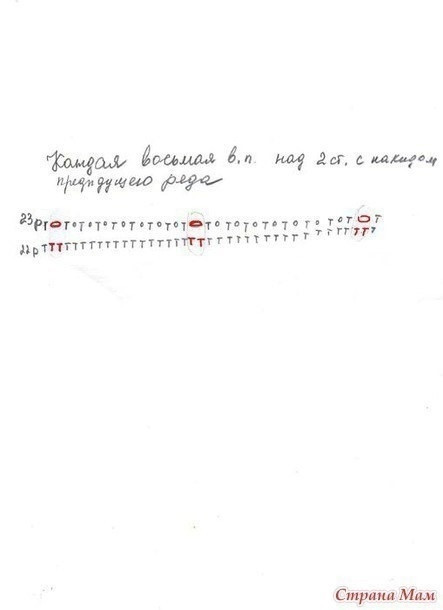 Каждая восьмая в.п. над 2 ст. с накидом
предыдущего ряда
23р ТОТОТОТОТОТОТОТОТОТОТОТОТОТОТОТОТОТОТ
22р ТТТТТТТТТТТТТТТТТТТТТТТТТТТТТТТТТТТТТТ
Страна Мам